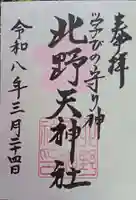 奉拝
学びの守り神
北野天神社
令和八年三月二十四日